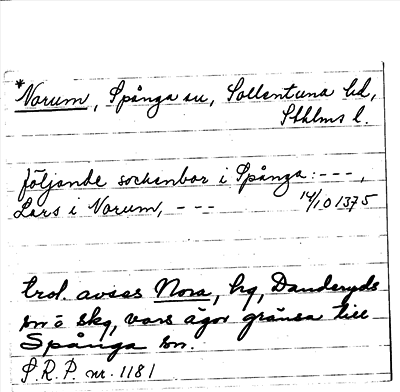 *Norum, Spånga sn, Sollentuna hd,
Sthlms l.
följande sockenbor i Spånga: ---,
Lars i Norum, --- 14/10 1375
trol. avses Nora, hg, Danderyds
sn o skg, vars ägor gränsa till
Spånga sn.
S.R.P. nr. 1181